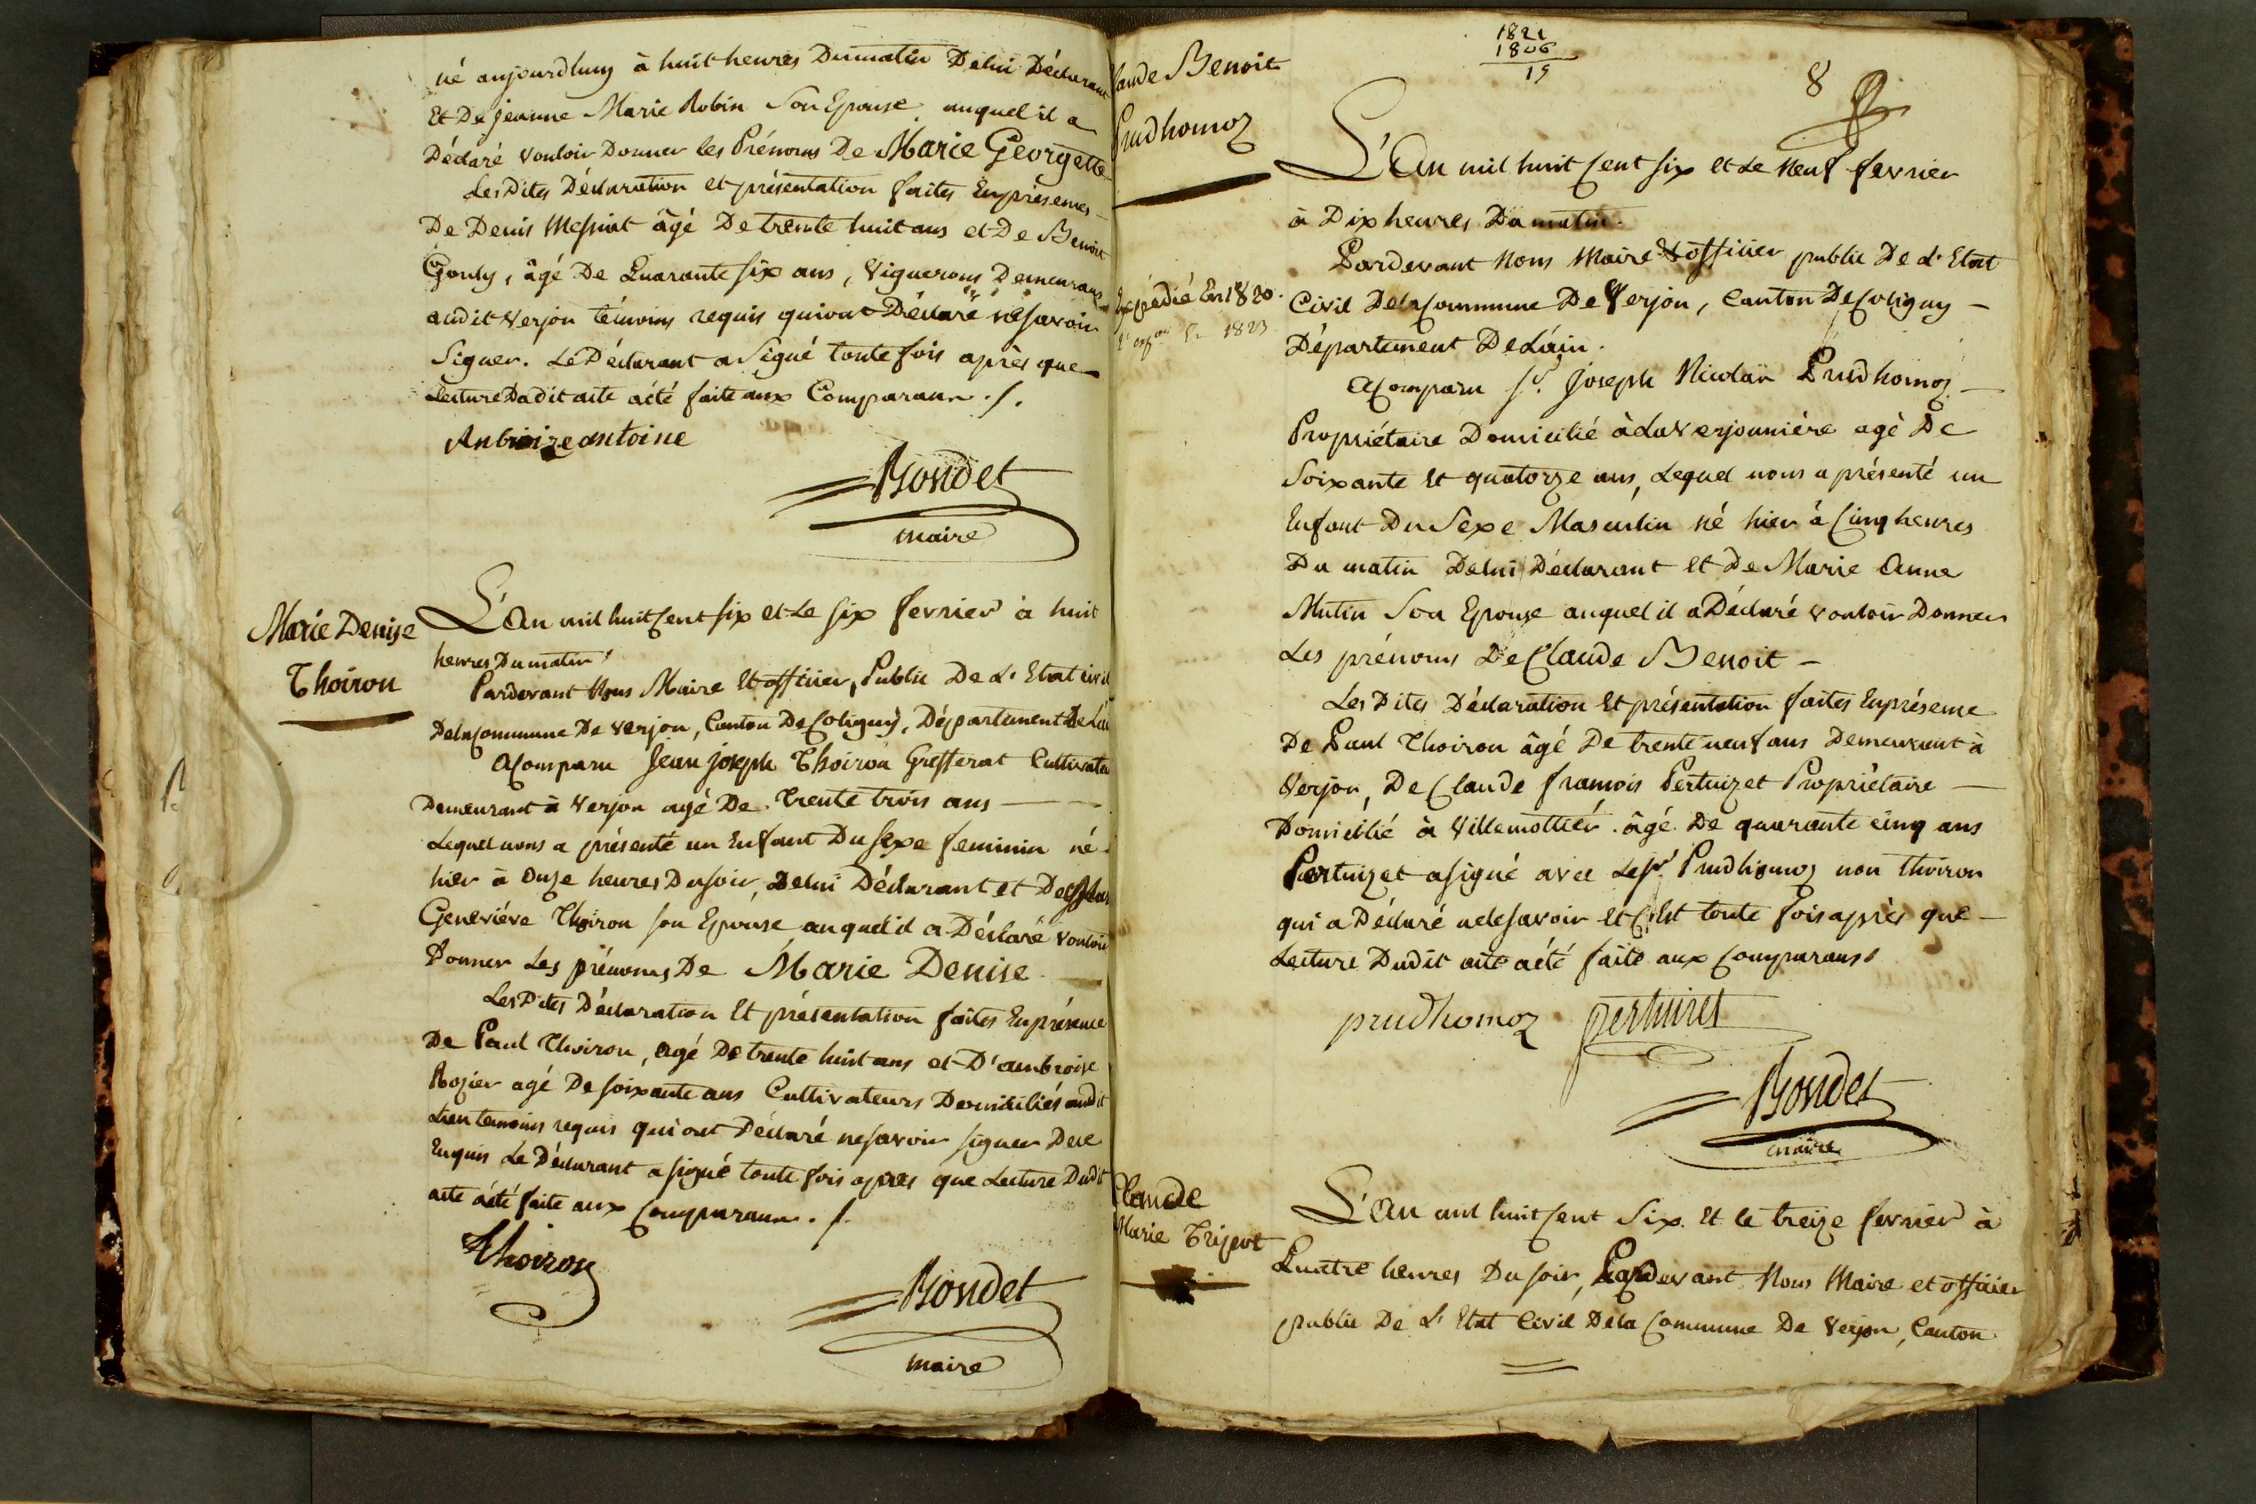 né aujourdhuy à huit heures Dumatin Delui Déclarant
Et De jeanne Marie Robin Son Epouse auquel il a
Déclaré vouloir Donner les Prénoms De Marie Georgette
Les Dites Déclaration et présentation faites Enprésences
De Denis Messiat âgé De trente huit ans et De Benoit
Gouly, âgé De Quarante six ans, Vignerons Demeurans
audit Verjon témoins requis quiont Déclaré nesavoir
Signer. Le Déclarant a Signé toute fois après que
Lecture Dudit acte aété faite aux Comparans ./.
Anbroize antoine
Bondet
maire
Marie Denise
Thoiron
L'An mil huit Cent six et Le six fevrier à huit
heures Dumatin
Pardevant Nous Maire Et officier Public De L'Etat civil
DelaCommune De Verjon, Canton DeColigny, Département DeLain
AComparu Jean joseph Thoiron Grefferat Cultivateur
Demeurant à Verjon agé De Trente trois ans
Lequel nous a présenté un Enfant Du Sexe feminin né
hier à Onze heures Dusoir, Delui Déclarant et De
Geneviéve Thoiron son Epouse auquel il a Déclaré vouloir
Donner Les prénoms De Marie Denise
Les Dites Déclaration Et présentation faites Enprésence
De Paul Thoiron, agé De trente huit ans et D'ambroise
Rozier agé De soixante ans Cultivateurs Domiciliés audit
Lieu temoins requis qui ont Déclaré nesavoir signer Dece
Enquis Le Déclarant a signé toute fois apres que Lecture Dudit
acte aété faite aux Comparans ./.
Thoiron
Bondet
maire
1821
1806
15
8
laude Benoit
Prudhomoz
Expédié En 1820.
1823
L'An mil huit Cent six et Le Neuf fevrier
à Dix heures Du matin.
Pardevant Nous Maire & officier public De L'Etat
Civil DelaCommune De Verjon, Canton DeColigny
Département DeLain.
AComparu Sr. Joseph Nicolas Prudhomoz
Propriétaire Domicilié àLaVerjonniére agé De
Soixante Et quatorze ans, Lequel nous a présenté un
Enfant Du Sexe Masculin né hier à Cinq heures
Du matin Delui Déclarant Et De Marie Anne
Mutin Son Epouse auquel il a Déclaré vouloir Donner
Les prénoms De Claude Benoit
Les Dites Déclaration Et présentation faites Enprésence
De Paul Thoiron âgé De trente neuf ans Demeurant à
Verjon, De Claude françois Pertuizet Propriétaire
Domicilié à Villemottier âgé De quarante cinq ans
Pertuizet a signé avec LeSr. Prudhomoz non thoiron
qui a Déclaré nelesavoir et Cest toute fois après que
Lecture Dudit acte aété faite aux Comparans
prudhomoz
pertuizet
Bondet
maire
Claude
Marie Tripot
L'An mil huit Cent Six Et le treize fevrier à
Quatre heures Du soir, Pardevant Nous Maire et officier
public De L'Etat Civil Dela Commune De Verjon, Canton